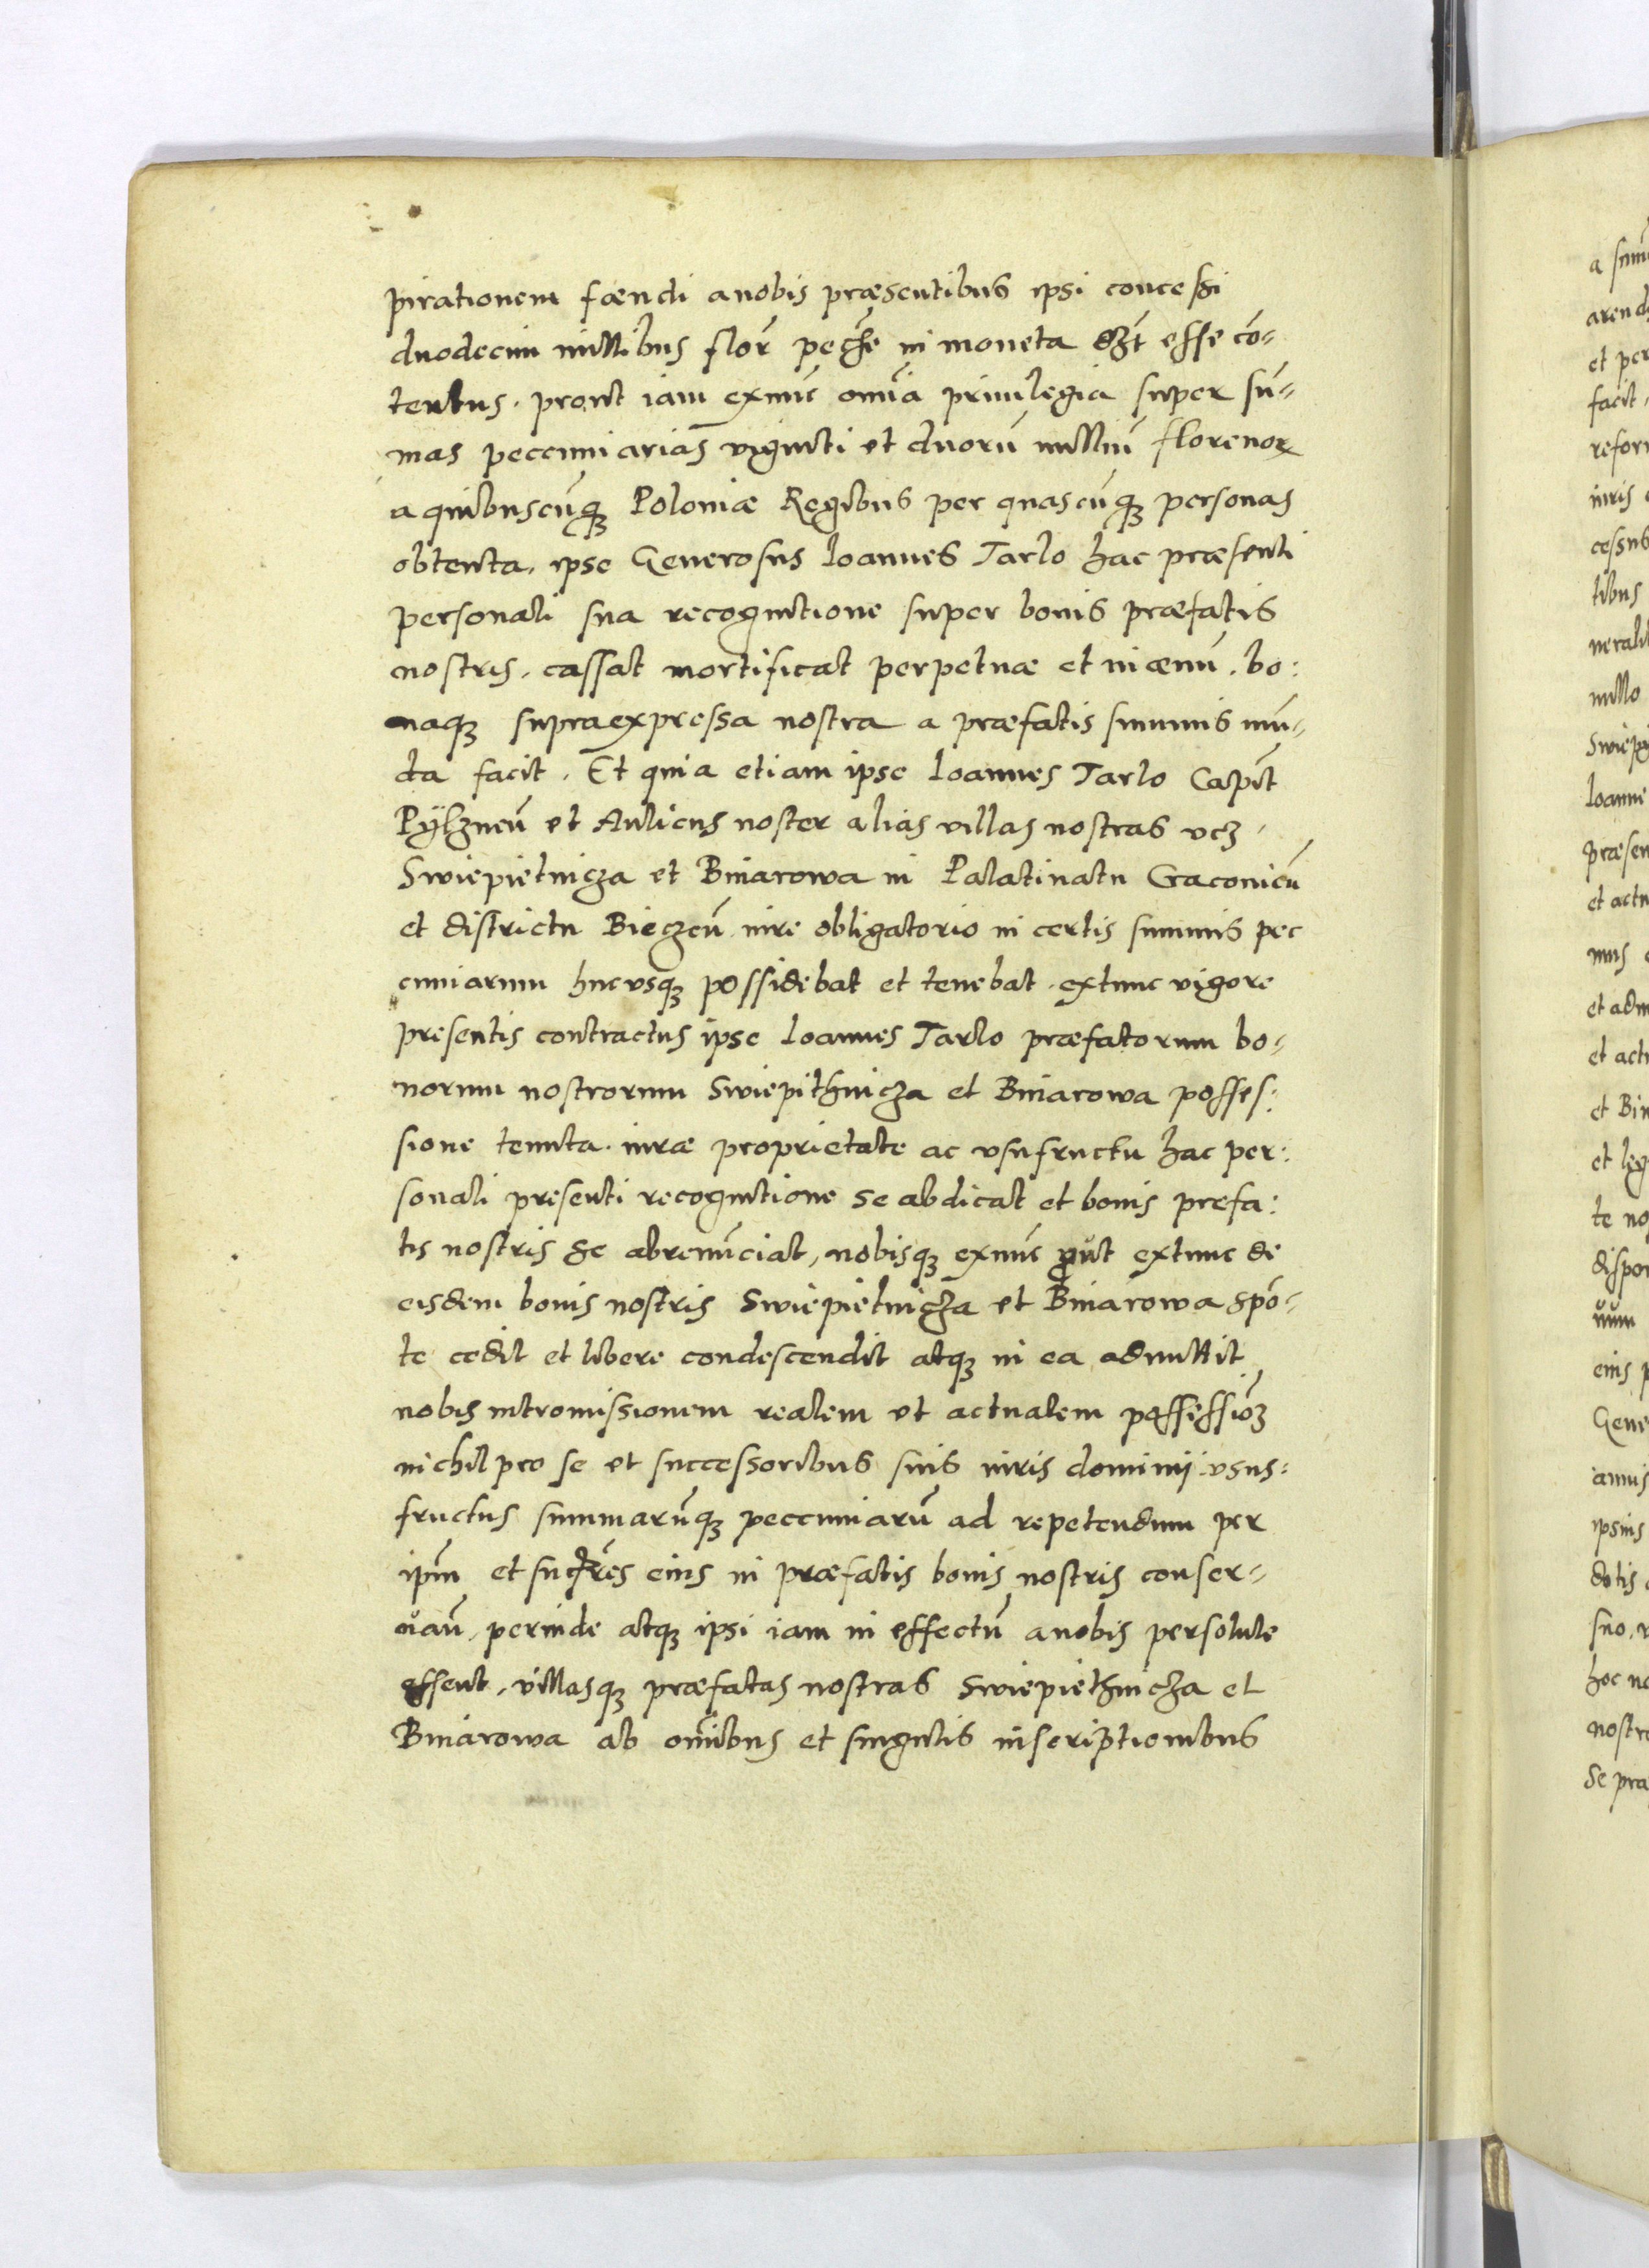 pirationem fændi a nobis præsentibus ipsi concessi
duodecim millibus flor̃ pec̃he in moneta dȝt esse cō-
tentus. prout iam exnūc om̃ia privilegia super sū-
mas peccuniarias viginti et duorū milliū florenoꝝ
a quibuscūqꝫ Poloniæ Regibus per quascūqꝫ personas
obtenta. ipse Generosus Ioannes Tarlo hac præsenti
personali sua recognitione super bonis præfatis
nostris. cassat mortificat perpetuæ et in ævū. bo:
naqꝫ supraexpressa nostra a præfatis summis mū-
da facit. Et quia etiam ipse Ioannes Tarlo Capit̃
Pÿlznen̄ et Aulicus noster alias villas nostras vcꝫ.
Swiepietnicza et Binarowa in Palatinatu Cracovien̄
et districtu Bieczen̄ iure obligatorio in certis summis pec
cuniarum hucusqꝫ possidebat et tenebat. extunc vigore
presentis contractus ipse Ioannes Tarlo præfatorum bo-
norum nostrorum Swiepithnicza et Binarowa posses:
sione tenuta. iuræ proprietate ac usufructu hac per:
sonali presenti recognitione se abdicat et bonis prefa:
tis nostris se abrenūciat, nobisqꝫ exnūc prout extunc de
eisdem bonis nostris Swiepietnicza et Binarowa spō-
te cedit et libere condescendit atqꝫ in ea admittit
nobis intromissionem realem et actualem possessiōꝫ
nichil pro se et successoribus suis iuris dominij. usus:
fructus summarūqꝫ peccuniarū ad repetendum per
ipm̄ et succ̃res eius in præfatis bonis nostris conser-
van̄. perinde atqꝫ ipsi iam in effectū a nobis persolute
essent. villasqꝫ præfatas nostras Swiepiethnicza et
Binarowa ab om̃ibus et singulis inscriptionibus